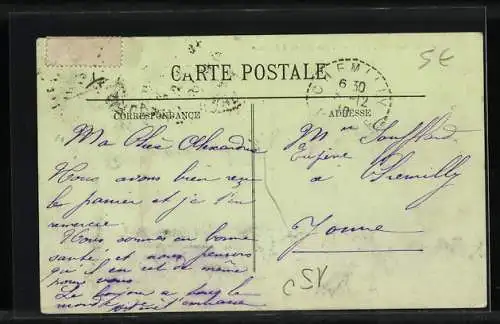 5€
CARTE POSTALE
CHEMILLY
6 30
12
CORRESPONDANCE
ADRESSE
Ma Chère Alexandrie
Nous avons bien reçu
le panier et je t'en
remercie
Nous sommes en bonne
santé et nous pensons
qu'il en est de même
pour vous
Le bonjour a tout le
monde
Eugène
a Chemilly
Yonne
SY